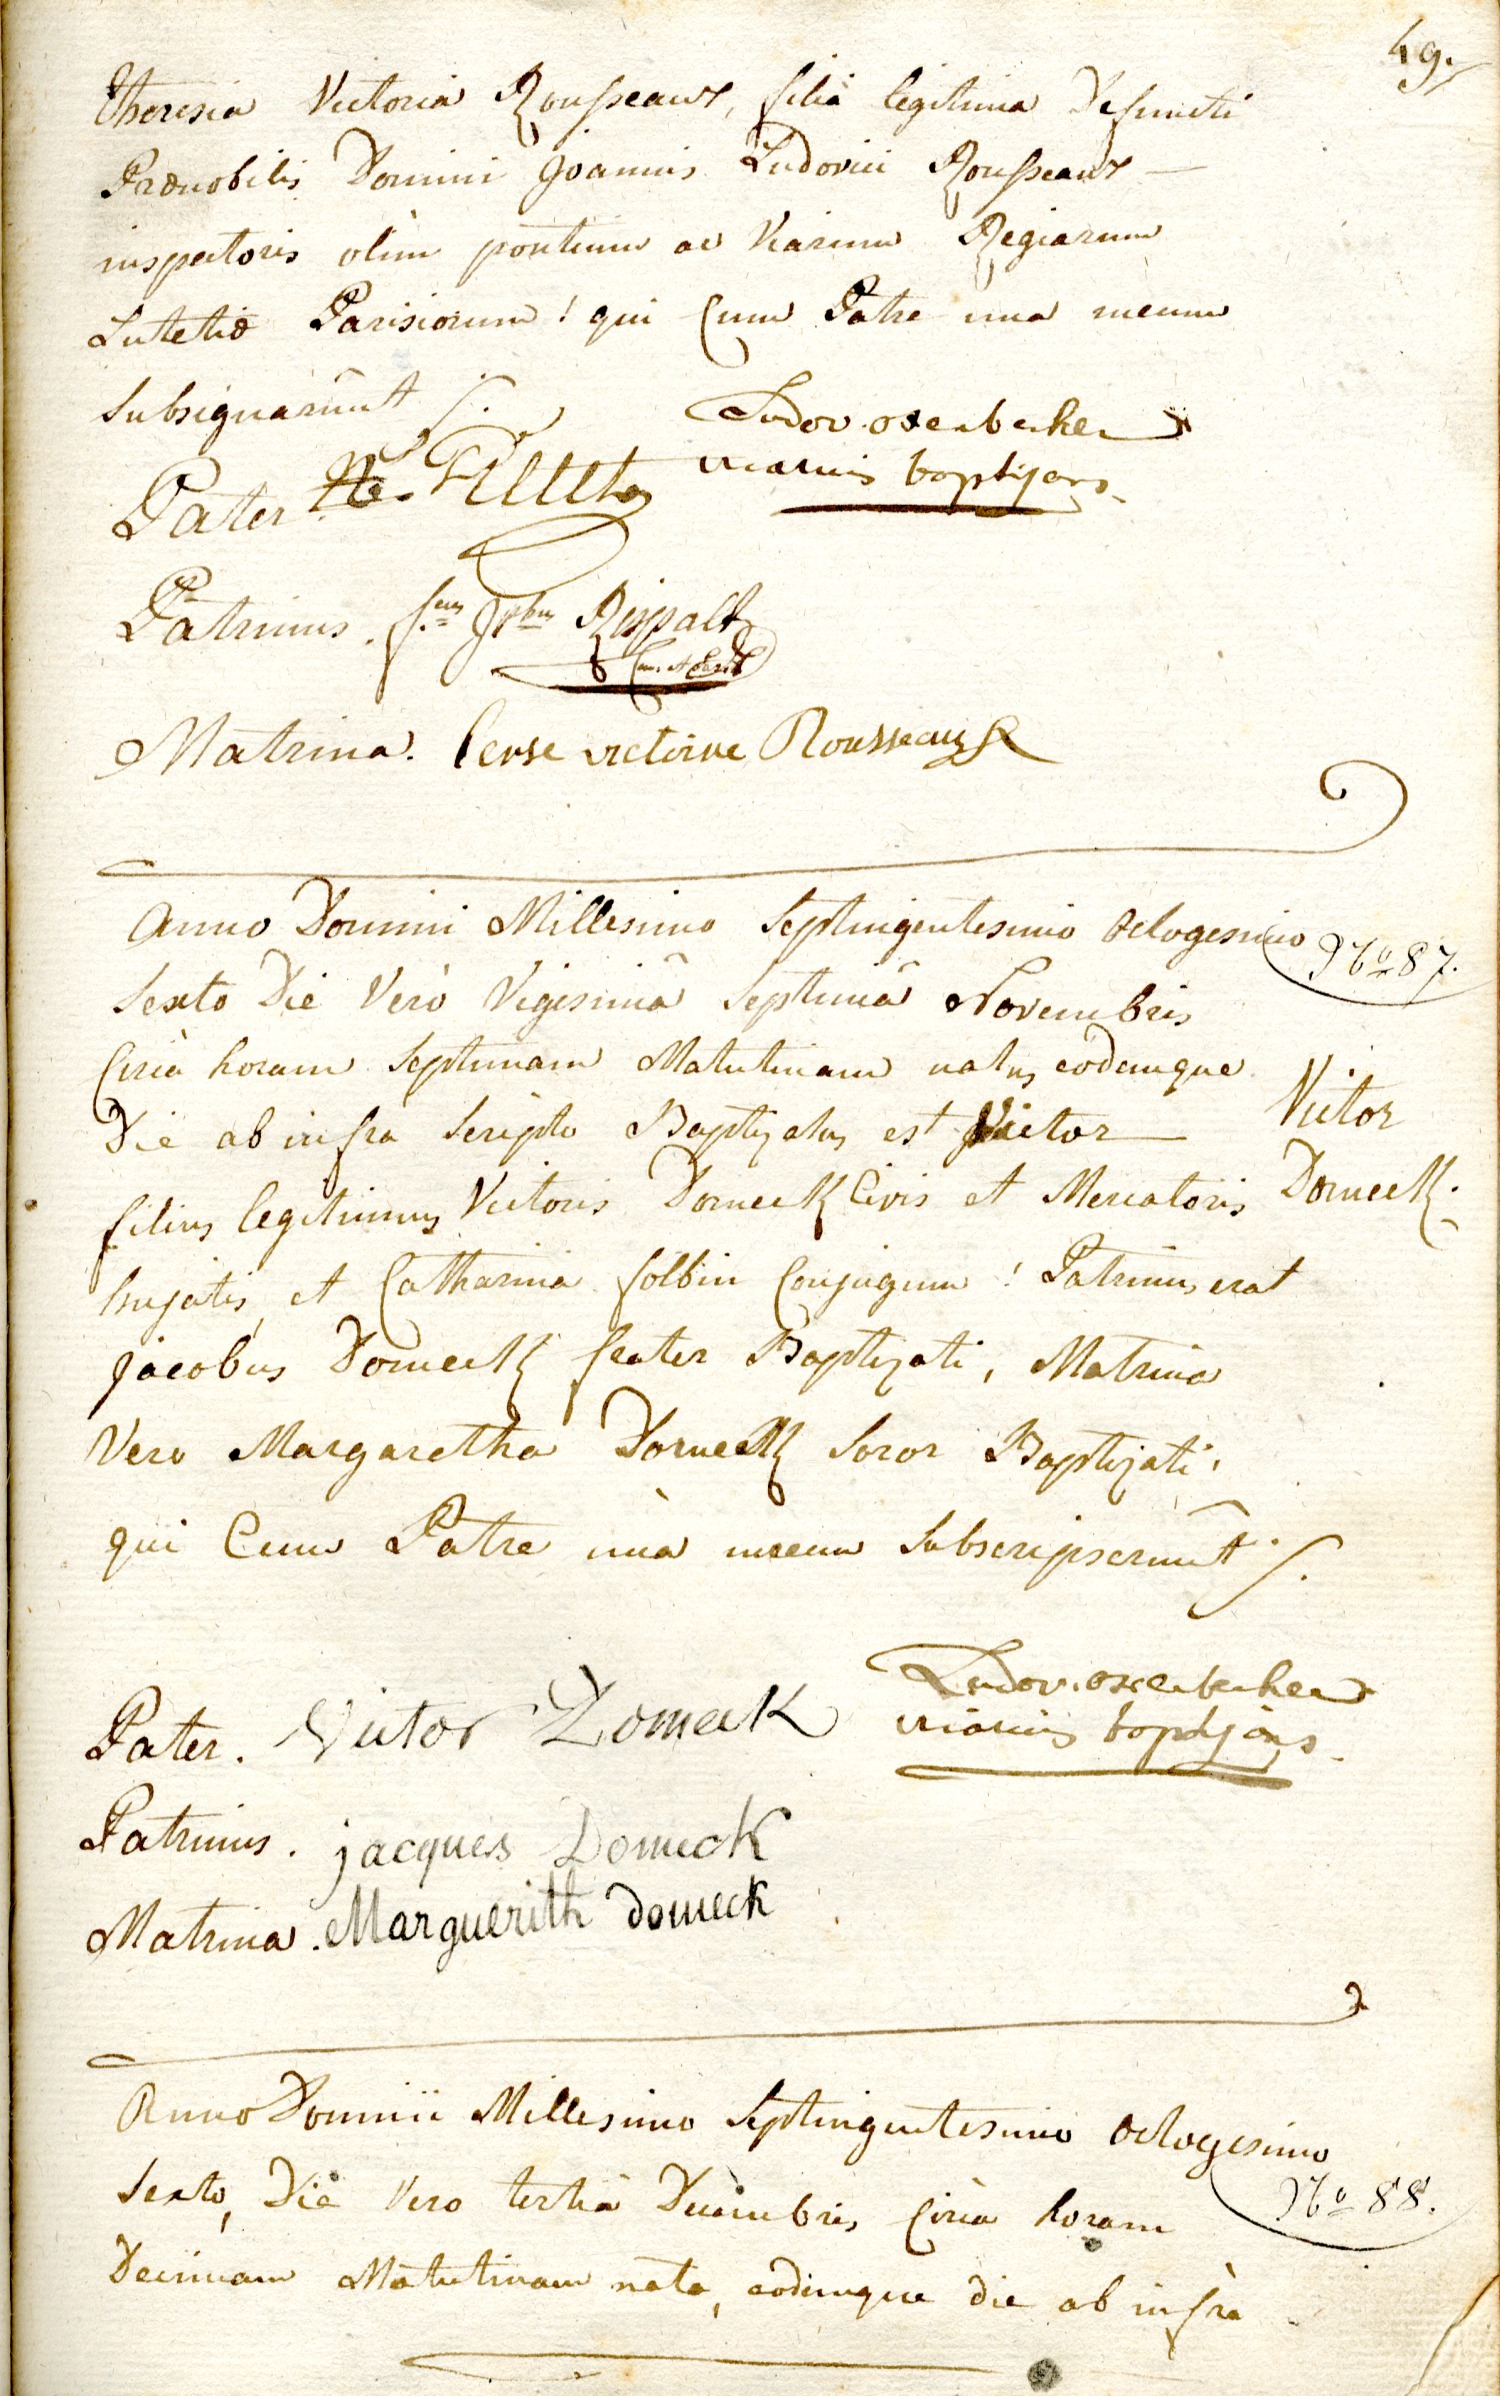 49.
Theresia Victoria Rousseaux, filia legitima Defuncti
Prænobilis Domini Joannis Ludovici Rousseaux —
inspectoris olim pontium ac Viarum Regiarum
Lutetiæ Parisiorum! qui Cum Patre una mecum
subsignarunt
Ludov. oxenbecher
vicarius baptizans.
Pater
Patrinus. Rispalt
Matrina. victoire Rousseaux
Anno Domini Millesimo Septingentesimo octogesimo
Nº 87.
Sexto Die Verò Vigesimâ Septimâ Novembris
Circà horam Septimam Matutinam natus eodemque
Die ab infra Scripto Baptizatus est Victor —
Victor
Domeck.
filius legitimus Victoris Domeck Civis et Mercatoris
hujatis, et Catharina folbin Conjugum! Patrinus erat
jacobus Domeck frater Baptizati, Matrina
Vero Margaretha Domeck Soror Baptizati,
qui Cum Patre unà mecum Subscripserunt
Ludov. oxenbecher
vicarius baptizans.
Pater. Victor Domeck
Patrinus. jacques Domeck
Matrina. Marguerith domeck
Anno Domini Millesimo Septingentesimo octogesimo
Nº 88.
Sexto, Die Vero tertiâ Decembris Circà horam
Decimam Matutinam nata, eodemque die ab infra